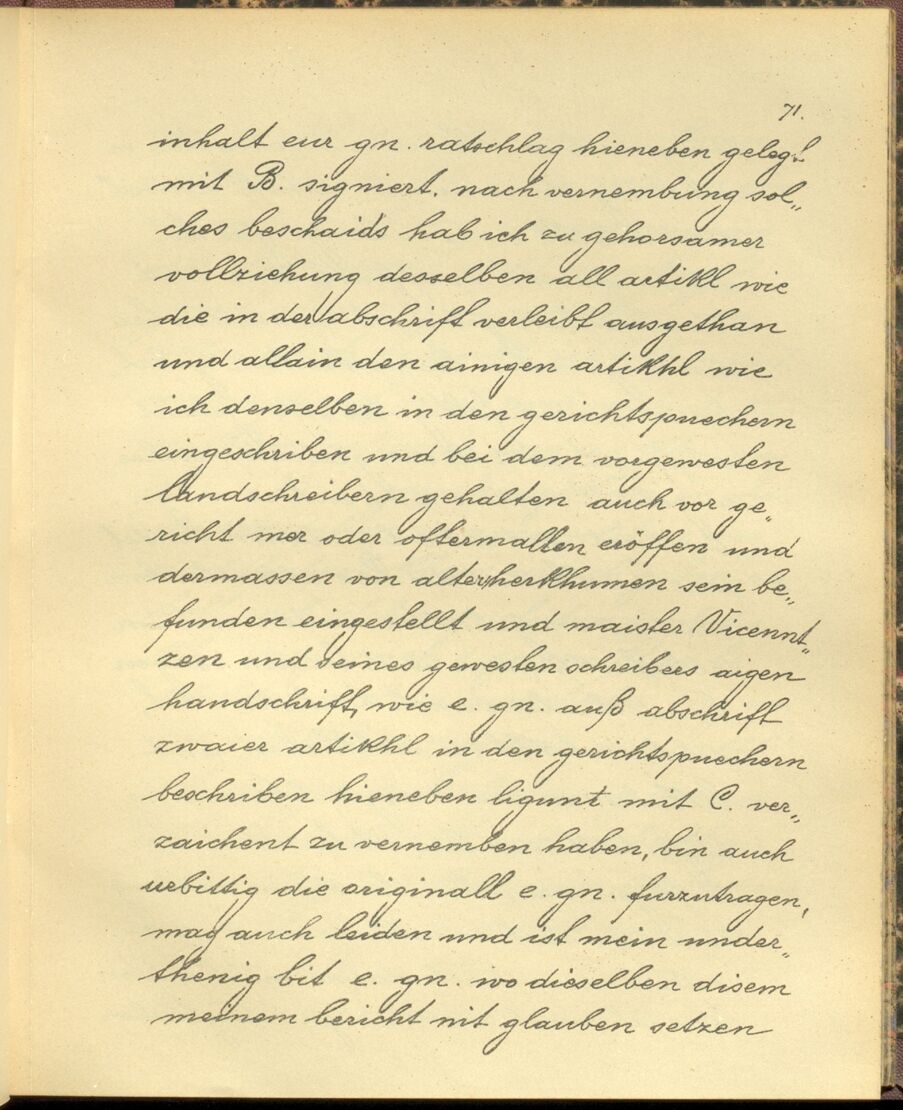 71.
inhalt eur gn. ratschlag hieneben gelegt
mit B. signiert. nach vernembung sol„
ches beschaids hab ich zu gehorsamer
vollziehung desselben all artikl wie
die in der abschrift verleibt ausgethan
und allain den ainigen artikhl wie
ich denselben in den gerichtspuechern
eingeschriben und bei dem vorgewesten
landschreibern gehalten auch vor ge„
richt mer oder oftermallen eröffen und
dermassen von alter herkhumen sein be„
funden eingestellt und maister Vicennt„
zen und seines gewesten schreibers aigen
handschrift, wie e. gn. auß abschrift
zwaier artikhl in den gerichtspuechern
beschriben hieneben ligunt mit C. ver„
zaichent zu vernemben haben, bin auch
urbittig die originall e. gn. furzutragen,
mag auch leiden und ist mein under„
thenig bit e. gn. wo dieselben disem
meinem bericht nit glauben setzen